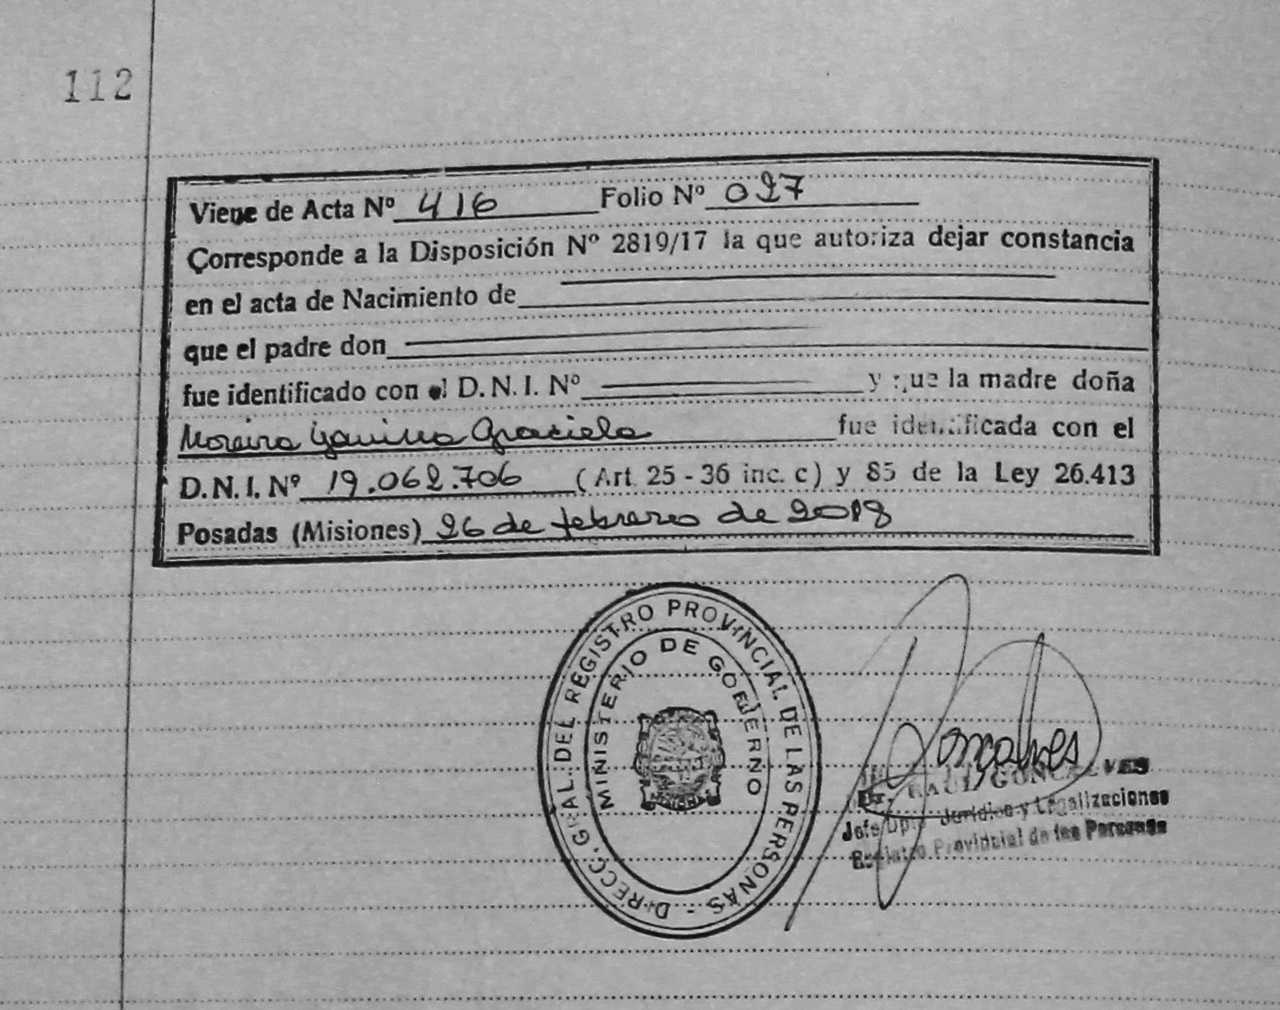 112
Viene de Acta Nº 416 Folio Nº 027
Corresponde a la Disposición Nº 2819/17 la que autoriza dejar constancia
en el acta de Nacimiento de
que el padre don
fue identificado con el D.N.I. Nº y que la madre doña
Moreira Yanina Graciela fue identificada con el
D.N.I. Nº 19.062.706 (Art. 25 - 36 inc. c) y 85 de la Ley 26.413
Posadas (Misiones) 26 de febrero de 2018
DIRECC. GRAL. DEL REGISTRO PROVINCIAL DE LAS PERSONAS -
MINISTERIO DE GOBIERNO
Goncalves
Dr. RAUL GONCALVES
Jefe Dpto. Jurídico y Legalizaciones
Registro Provincial de las Personas